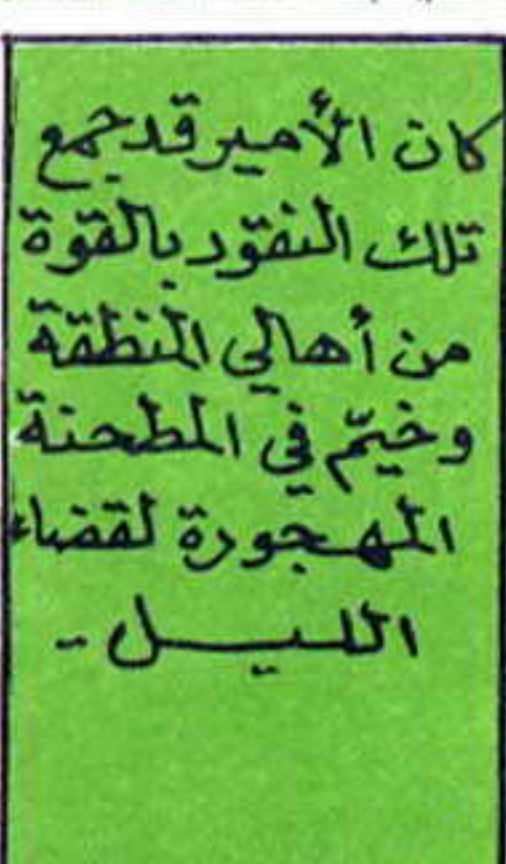 كان الأمير قد جمع
تلك النقود بالقوة
من أهالي المنطقة
وخيّم في المطحنة
المهجورة لقضاء
الليل -